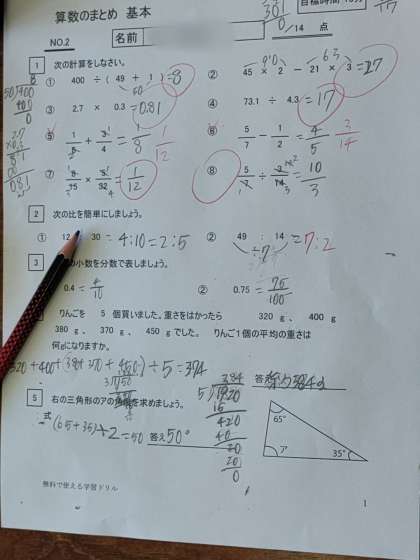 算数のまとめ 基本
NO.2
名前
0/14 点
1 次の計算をしなさい。
① 400 ÷ ( 49 + 1 ) =8
50
② 45 × 2 - 21 × 3 =27
90 63
③ 2.7 × 0.3 =0.81
④ 73.1 ÷ 4.3 =17
⑤ 1/ + /4 = 1/8 1/12
⑥ 5/7 - 1/2 = 4/5 3/14
⑦ 8/15 × /32 = 1/12
⑧ 5/7 ÷ 3/14 = 10/3
2 次の比を簡単にしましょう。
① 12 30 = 4:10=2:5
② 49 : 14 7:2
÷7
3 の小数を分数で表しましょう。
① 0.4 = 4/10
② 0.75 = 75/100
りんごを 5 個買いました。重さをはかったら 320 g 、 400 g
380 g 、 370 g 、 450 g でした。 りんご1個の平均の重さは
何gになりますか。
320+400+(380+370+450)÷5=374
答 384g
384
5)1920
15
420
40
20
20
0
5 右の三角形のアの角度を求めましょう。
式 (65+35)÷2=50 答え 50°
65°
ア
35°
無料で使える学習ドリル
1